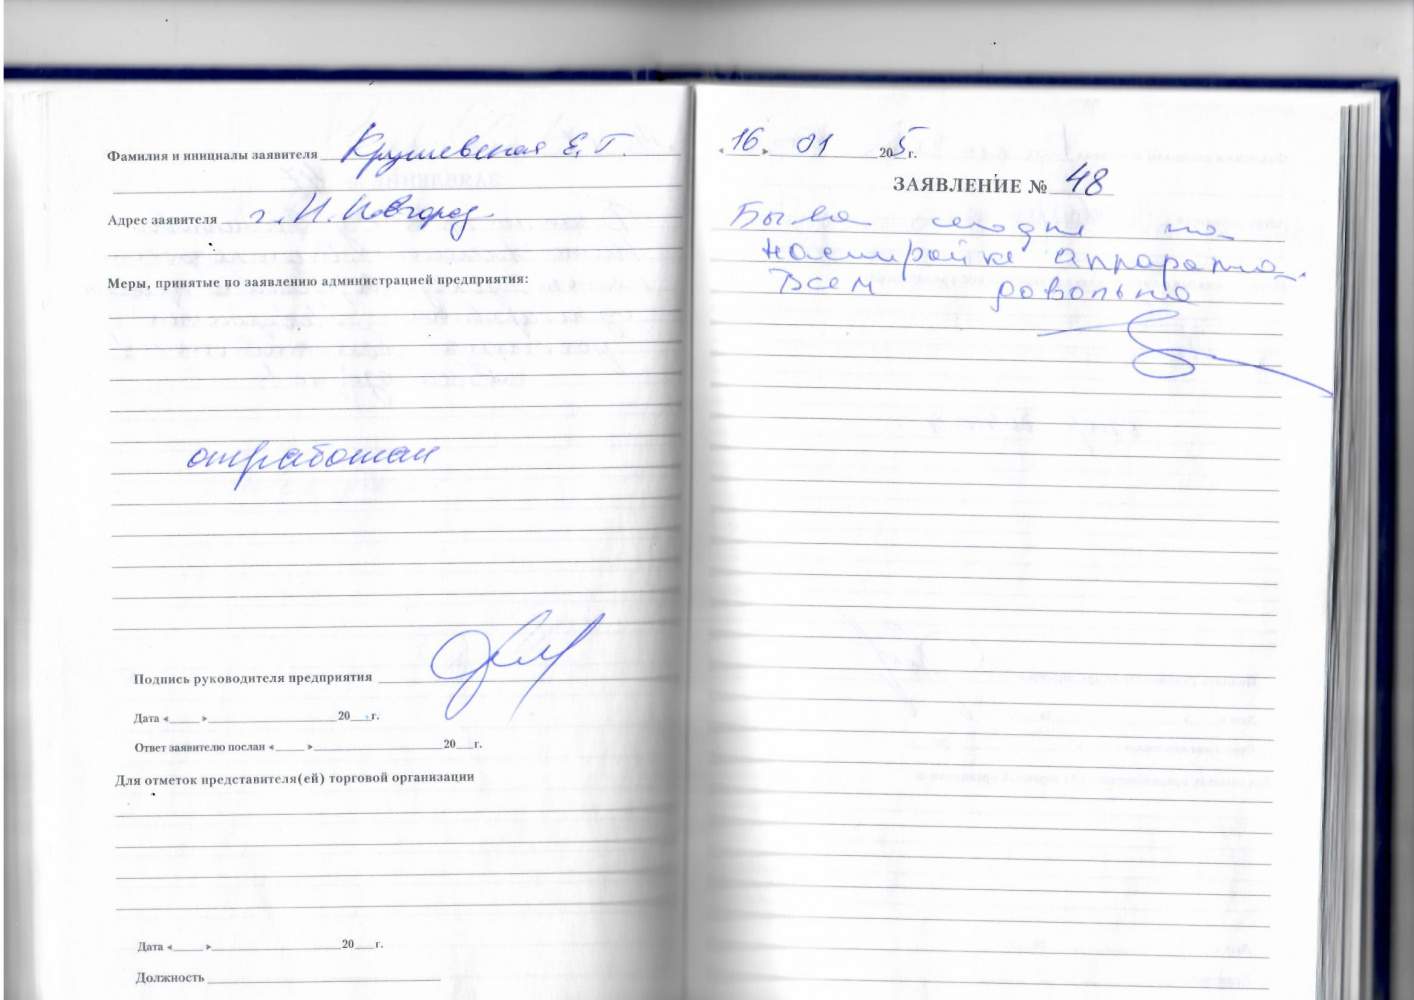 Фамилия и инициалы заявителя Крушевская Е.Г.
Адрес заявителя г. Н. Новгород
Меры, принятые по заявлению администрацией предприятия:
отработан
Подпись руководителя предприятия
Дата «____» ____ 20__ г.
Ответ заявителю послан «____» ____ 20__ г.
Для отметок представителя(ей) торговой организации
Дата «____» ____ 20__ г.
Должность
«16» 01 205 г.
ЗАЯВЛЕНИЕ № 48
Была сегодня на
настройке аппарата.
Всем довольна